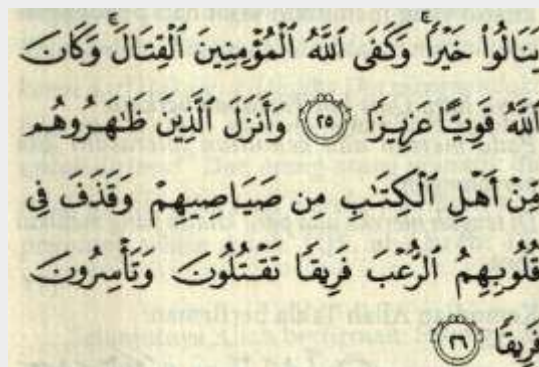 يَنَالُوا۟ خَيْرًا ۚ وَكَفَى ٱللَّهُ ٱلْمُؤْمِنِينَ ٱلْقِتَالَ ۚ وَكَانَ
ٱللَّهُ قَوِيًّا عَزِيزًا ﴿٢٥﴾ وَأَنزَلَ ٱلَّذِينَ ظَـٰهَرُوهُم
مِّنْ أَهْلِ ٱلْكِتَـٰبِ مِن صَيَاصِيهِمْ وَقَذَفَ فِى
قُلُوبِهِمُ ٱلرُّعْبَ فَرِيقًا تَقْتُلُونَ وَتَأْسِرُونَ
فَرِيقًا ﴿٢٦﴾